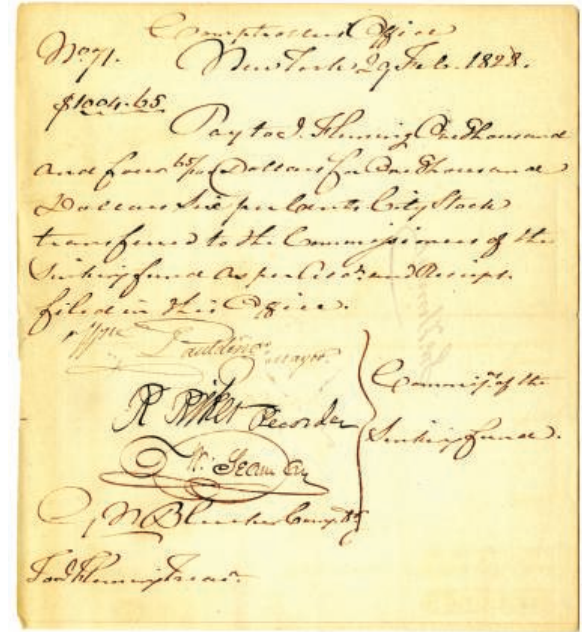 Comptrollers Office
No. 71. New York 29 Feb. 1828.
$1004.65
Pay to J. Fleming One Thousand
and four 65/100 Dollars for One Thousand
Dollars Six per Cents City Stock
transferred to the Commissioners of the
Sinking fund as per and Receipt
filed in this Office.
Wm Paulding Mayor
Commisrs. of the
R Riker Recorder
Sinking fund.
W. Seaman
Fleming Treasr.